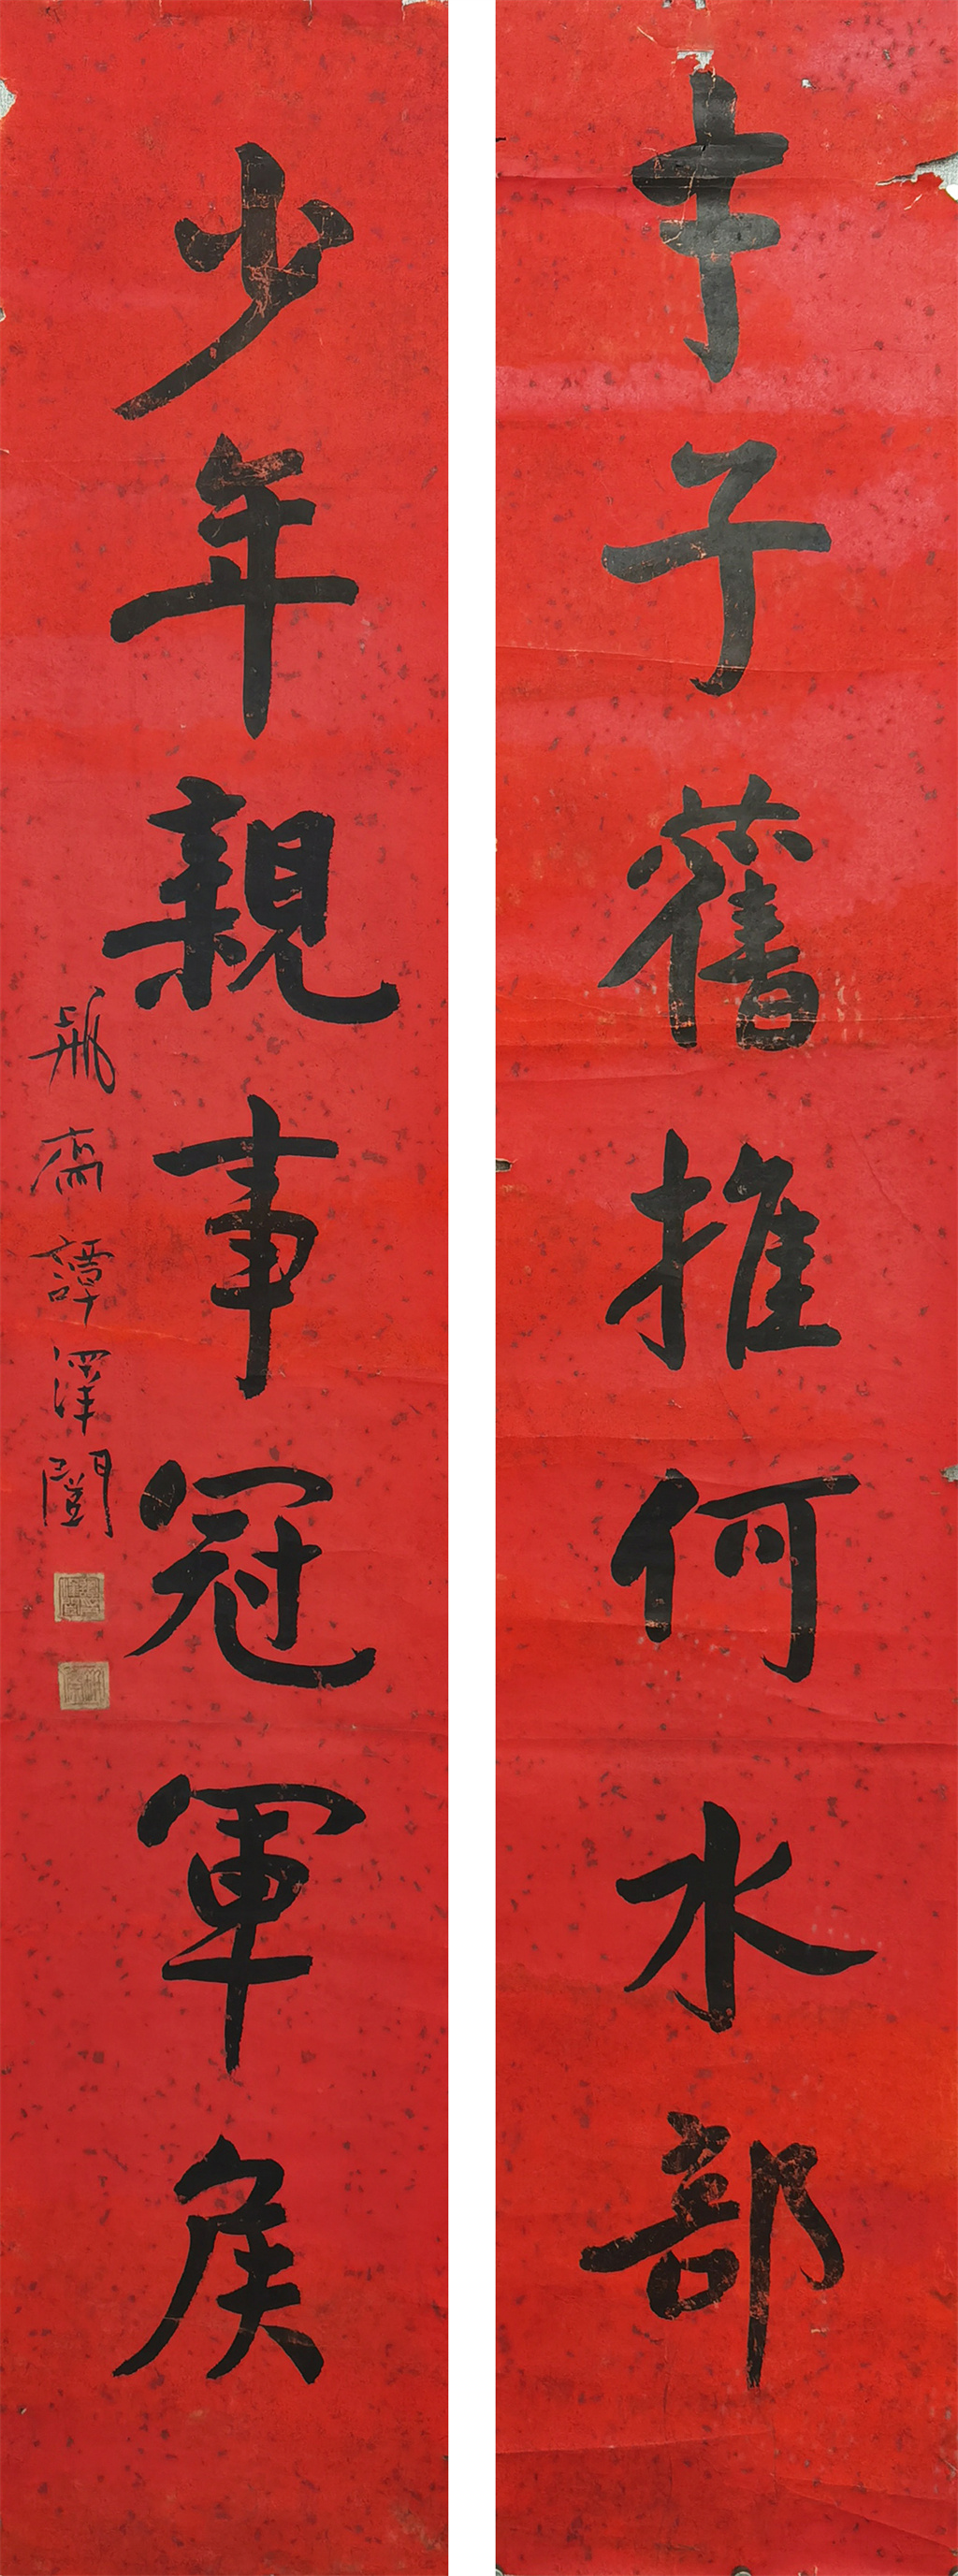 才子舊推何水部
少年親事冠軍矦
瓶齋譚澤闓